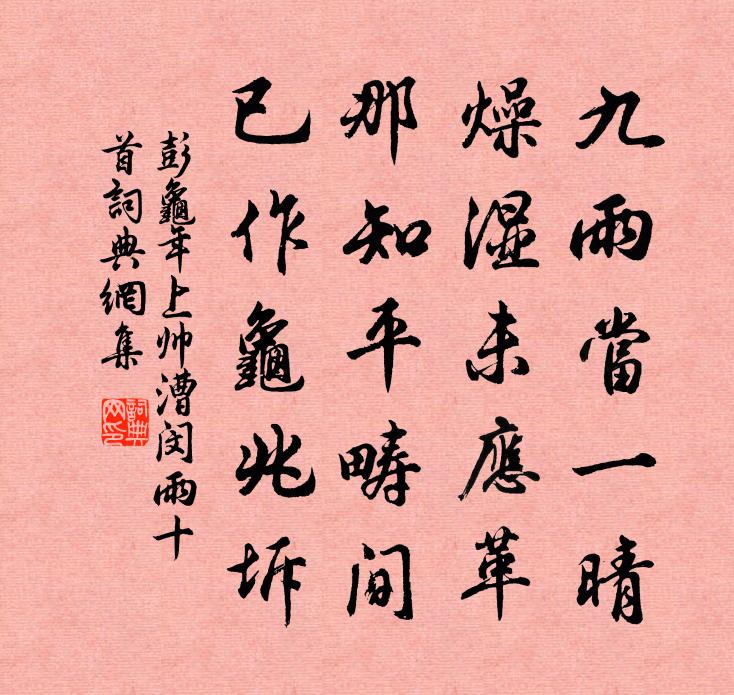 九雨當一晴
燥湿未應革
那知平疇间
已作龜兆坼
彭龜年上帅漕闵雨十
首詞典網集
詞典
网印